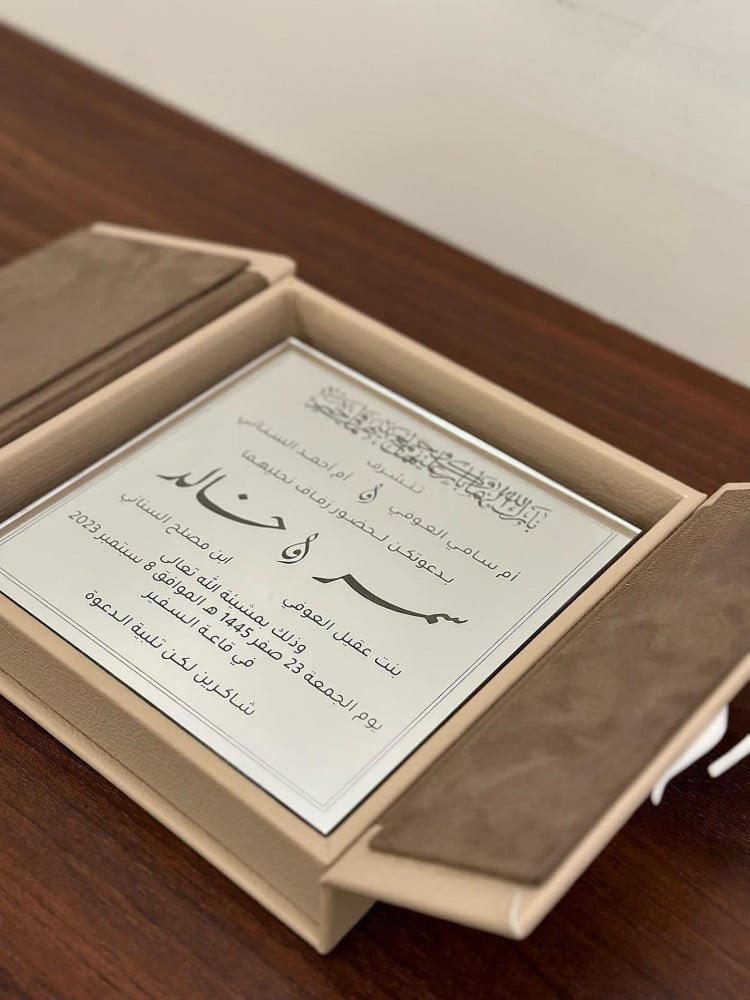 تتشرف
أم سامي العوفي و أم أحمد السناني
بدعوتكن لحضور زفاف نجليهما
سمر و خالد
بنت عقيل العوفي ابن مصلح السناني
وذلك بمشيئة الله تعالى
يوم الجمعة 23 صفر 1445 هـ الموافق 8 سبتمبر 2023
في قاعة السفير
شاكرين لكن تلبية الدعوة